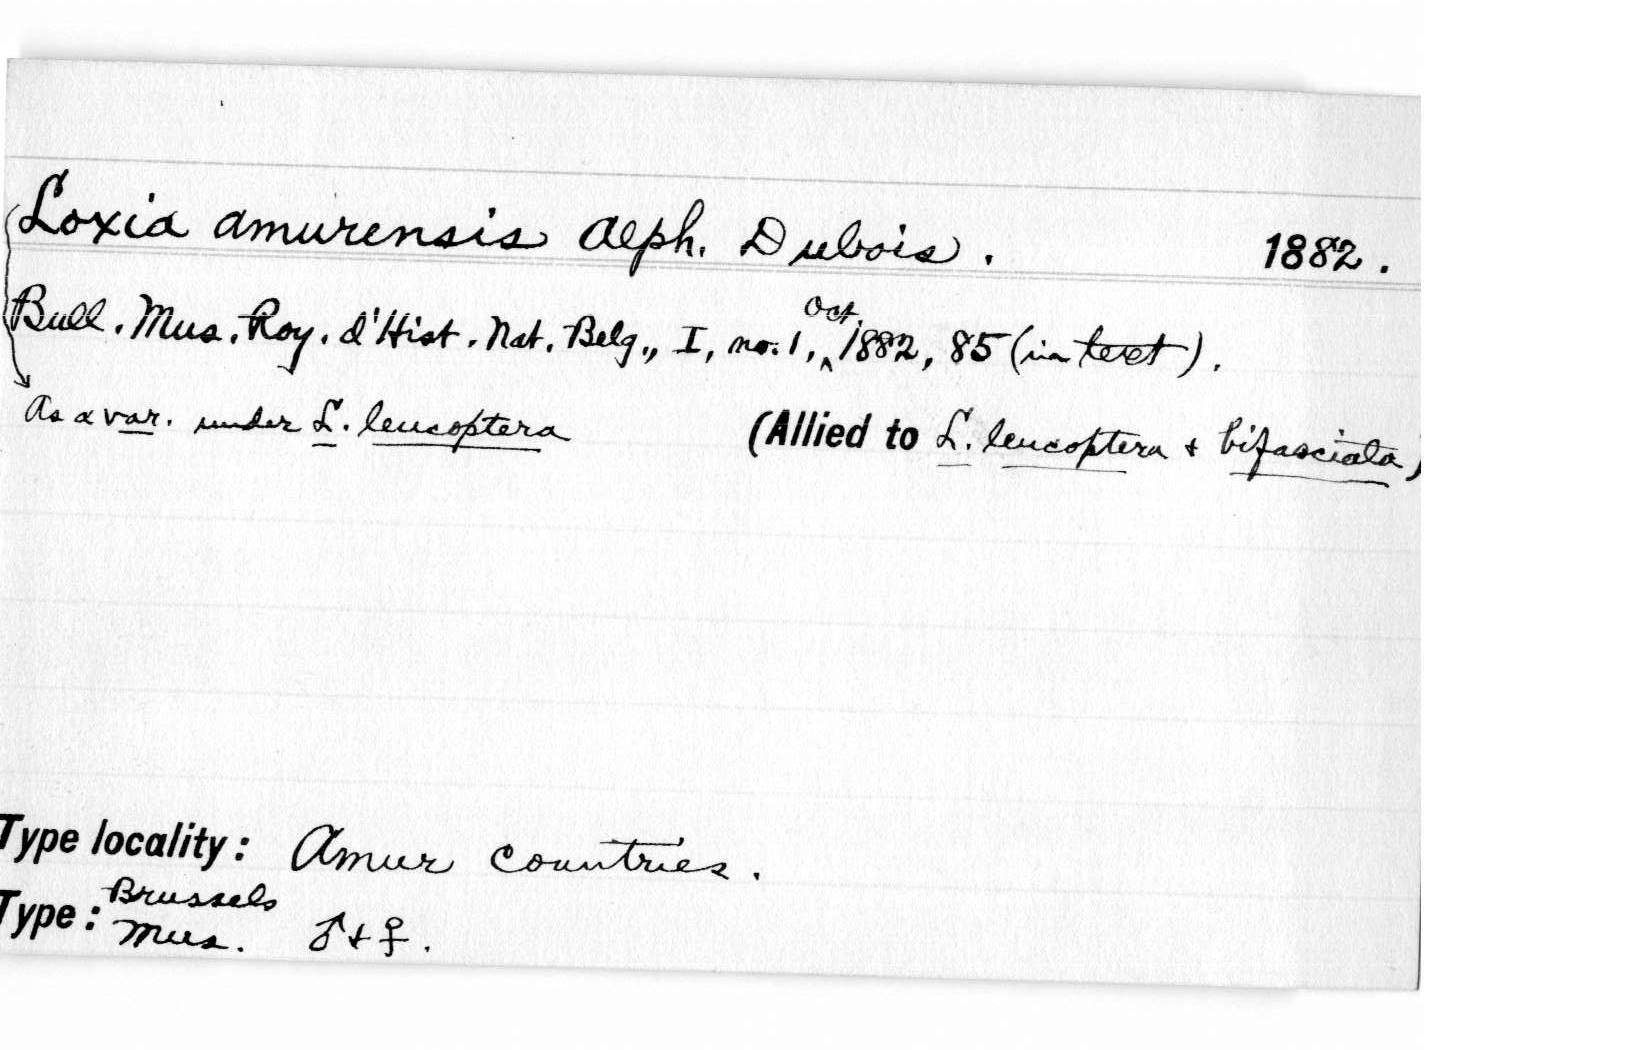 Loxia amurensis Alph. Dubois. 1882.
Bull. Mus. Roy. d'Hist. Nat. Belg., I, no. 1, Oct. 1882, 85 (in text).
As a var. under L. leucoptera (Allied to L. leucoptera + bifasciata)
Type locality: Amur countries.
Type: Brussels
Mus. ♂ + ♀.